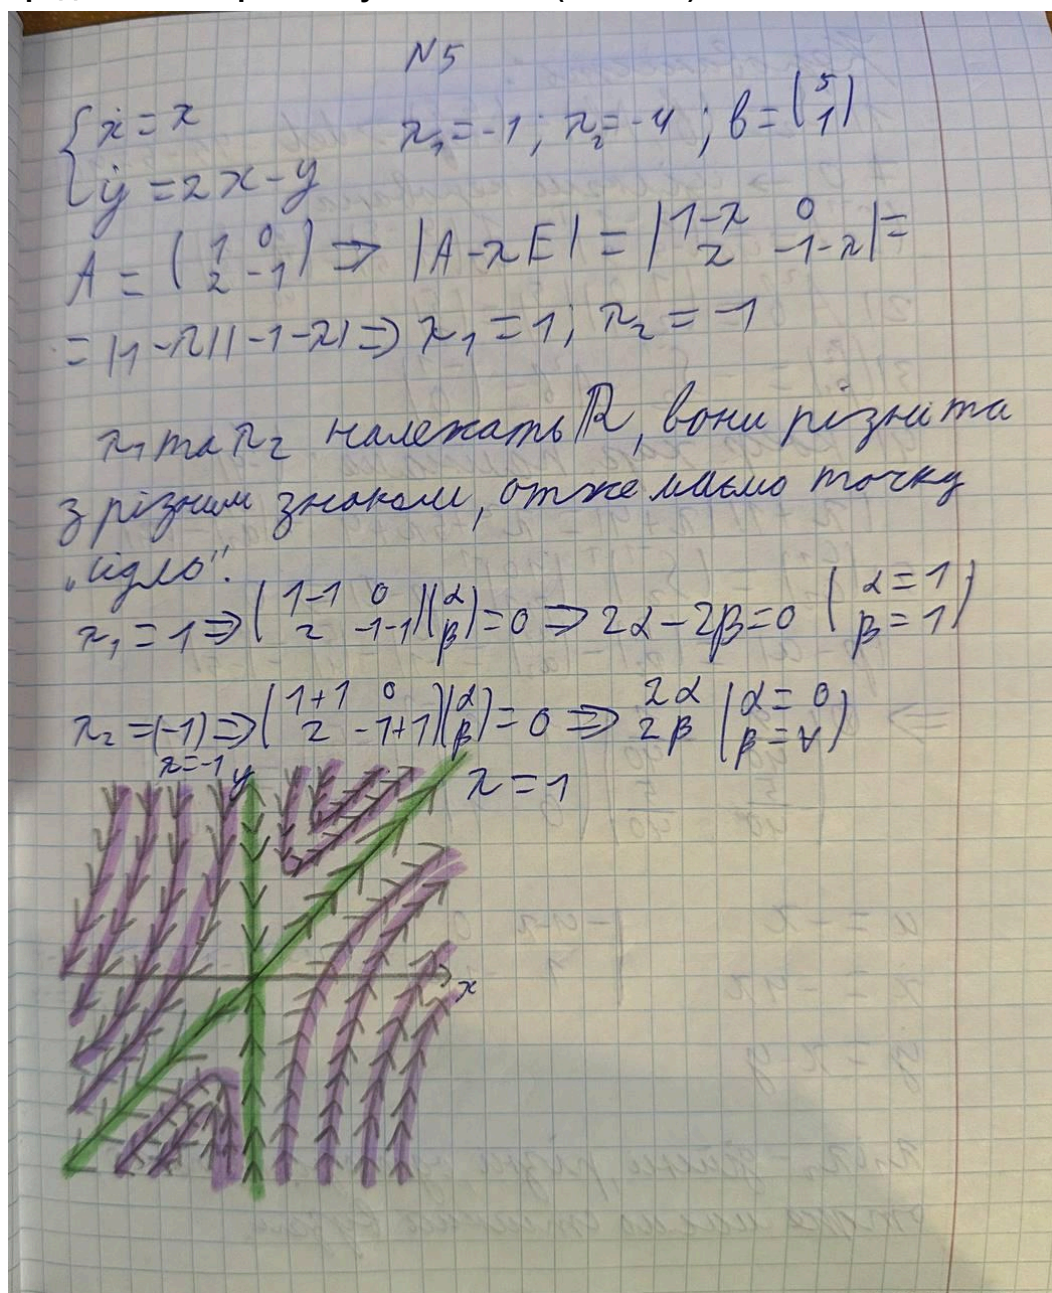 N5
{ẋ = x
ẏ = 2x - y
λ₁ = -1; λ₂ = -4; b = (5 1)
A = (1 0 2 -1) ⇒ |A - λE| = |1-λ 0 2 -1-λ| =
= |1-λ||-1-λ| ⇒ λ₁ = 1; λ₂ = -1
λ₁ та λ₂ належать ℝ, вони різні та
з різним знаком, отже маємо точку
"сідло".
λ₁ = 1 ⇒ (1-1 0 2 -1-1)(α β) = 0 ⇒ 2α - 2β = 0 (α = 1 β = 1)
λ₂ = (-1) ⇒ (1+1 0 2 -1+1)(α β) = 0 ⇒ 2α 2β (α = 0 β = ∀)
λ = -1
y
λ = 1
x